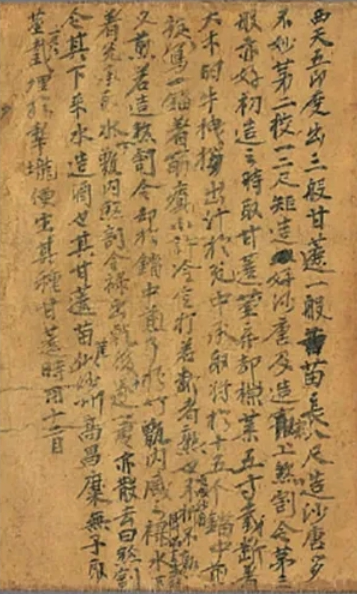 西天五印度出三般甘蔗一般苗長八尺造沙唐多
不妙第二挍一二尺矩造好沙唐及造最上煞割令第三
般亦好初造之時取甘蔗莖弃却梢葉五寸截斷著
大木臼牛拽拶出汁於瓮中承取将於十五个鐺中煎
旋寫一鐺著筯瘨小許冷定打若斷者熟也便成沙唐不折不熟
又煎若造煞割令却於鐺中煎了於竹甑内盛之禄水下
著瓮承取水竹甑内煞割令禄出乾後手遂一處亦散去曰煞割
令其下來水造酒也其甘蔗苗莖似沙州高昌糜無子取
莖一尺埋於犁壠便生其種甘蔗時用十二月